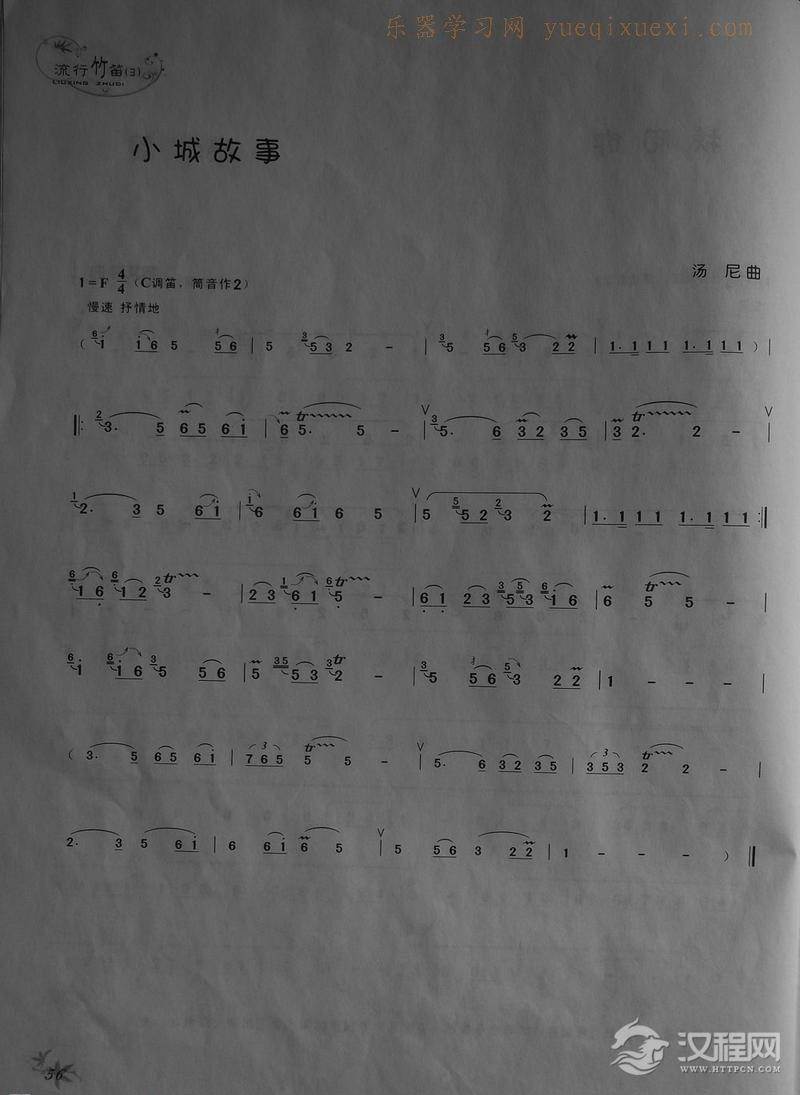 乐器学习网 yueqixuexi.com
流行竹笛(3)
LIUXING ZHUDI
小城故事
汤 尼曲
1=F 4/4 (C调笛, 筒音作2)
慢速 抒情地
( 1̇ 1̇ 6 5 5 6 | 5 5 3 2 - | 5 5 6 3 2 2 | 1. 1 1 1 1. 1 1 1 ) |
‖: 3. 5 6 5 6 1̇ | 6 5. 5 - | 5. 6 3 2 3 5 | 3 2. 2 - |
2. 3 5 6 1̇ | 6 6 1̇ 6 5 | 5 5 2 3 2 | 1. 1 1 1 1. 1 1 1 :‖
1 6̣ 1 2 3 - | 2 3 6̣ 1 5̣ - | 6̣ 1 2 3 5 3 1 6̣ | 6 5 5 - |
1̇ 1̇ 6 5 5 6 | 5 5 3 2 - | 5 5 6 3 2 2 | 1 - - - |
( 3. 5 6 5 6 1̇ | 7 6 5 5 5 - | 5. 6 3 2 3 5 | 3 5 3 2 2 - |
2. 3 5 6 1̇ | 6 6 1̇ 6 5 | 5 5 6 3 2 2 | 1 - - - ) ‖
56
汉程网
WWW.HTTPCN.COM